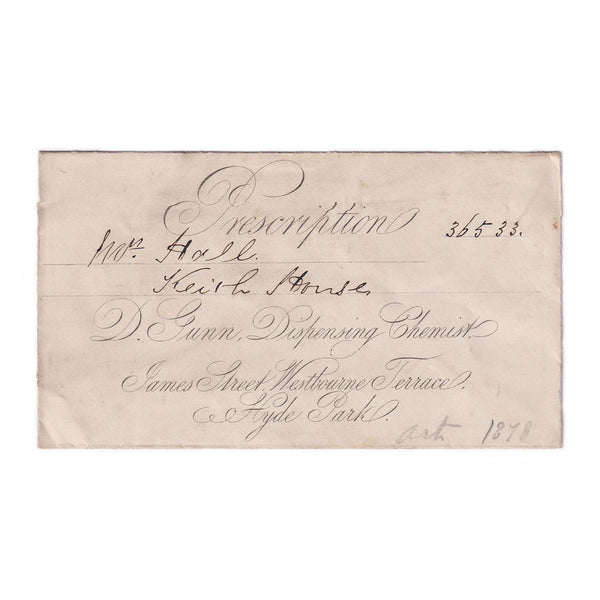 Prescription 36533.
Mrs. Hall.
Keith House
D. Gunn, Dispensing Chemist.
James Street, Westbourne Terrace.
Hyde Park.
1878